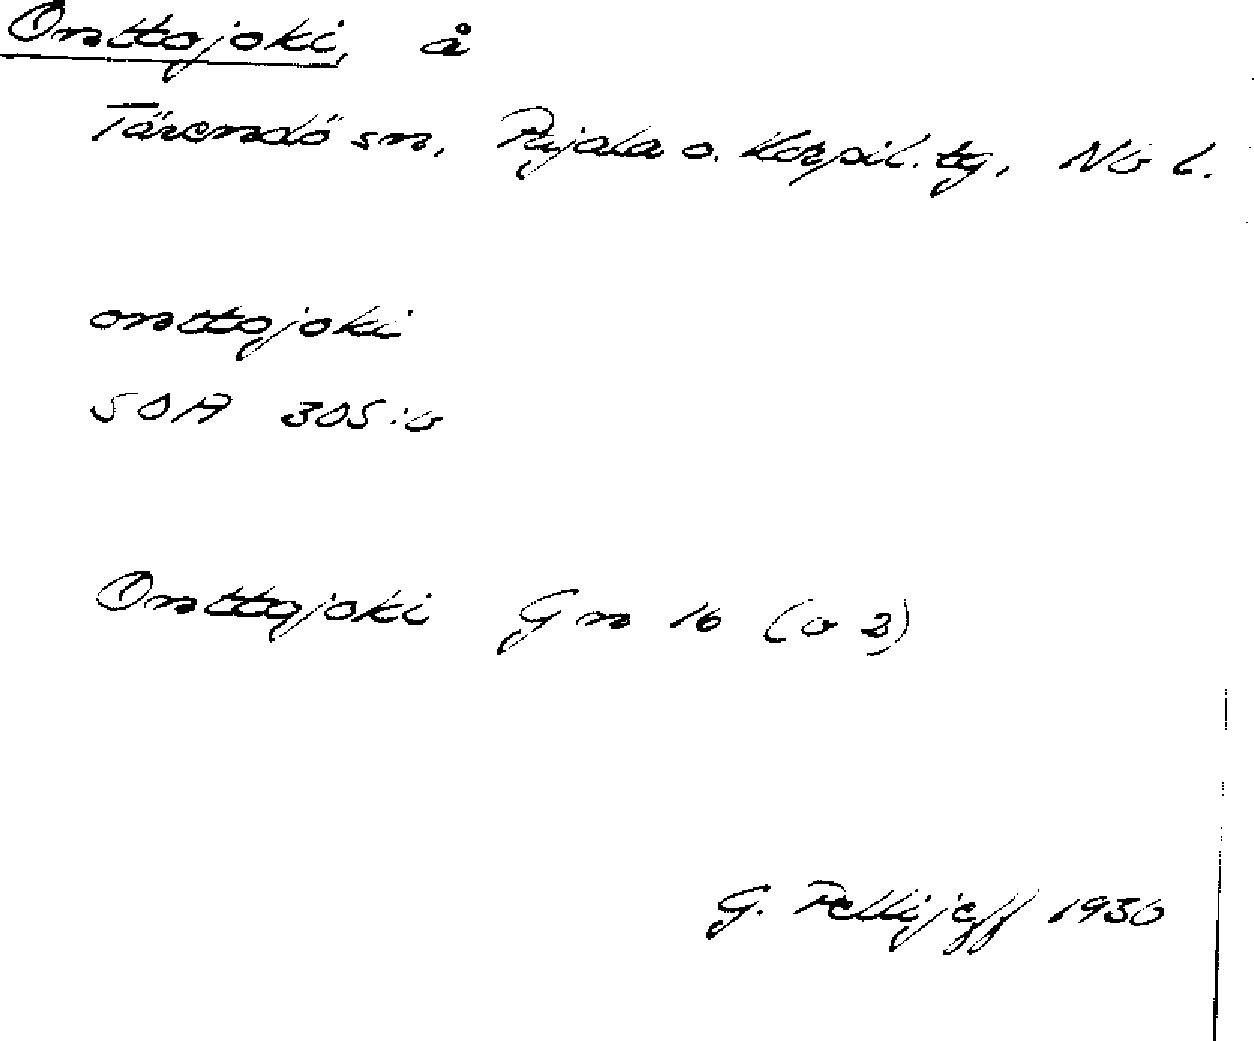 Onttojoki, å
Tärendö sn, Pajala o. Korpil. tg, Nb l.
onttojoki
SOA 305:6
Onttojoki Gn 16 (o 2)
G. Pellijeff 1936